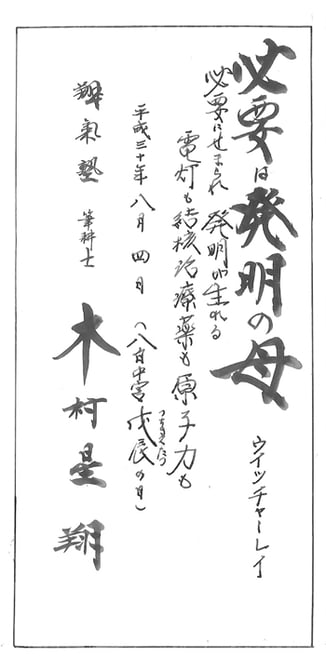 必要は発明の母
ウイッチャーレイ
必要にせまられ 発明が生れる
電灯も結核治療薬も原子力も
平成三十年八月四日(八白中宮戊辰の日)
つちのえたつ
翔氣塾 筆耕士 木村星翔